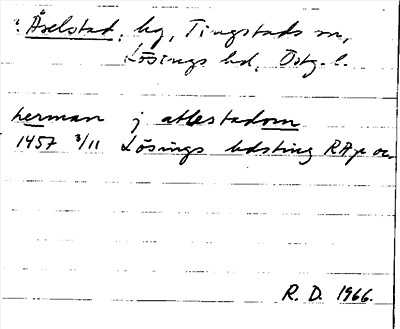 : Åselstad, by, Tingstads sn,
Lösings hd, Östg. l.
herman j atlestadom
1457 3/11 Lösings hdsting RAp or.
R. D. 1966.